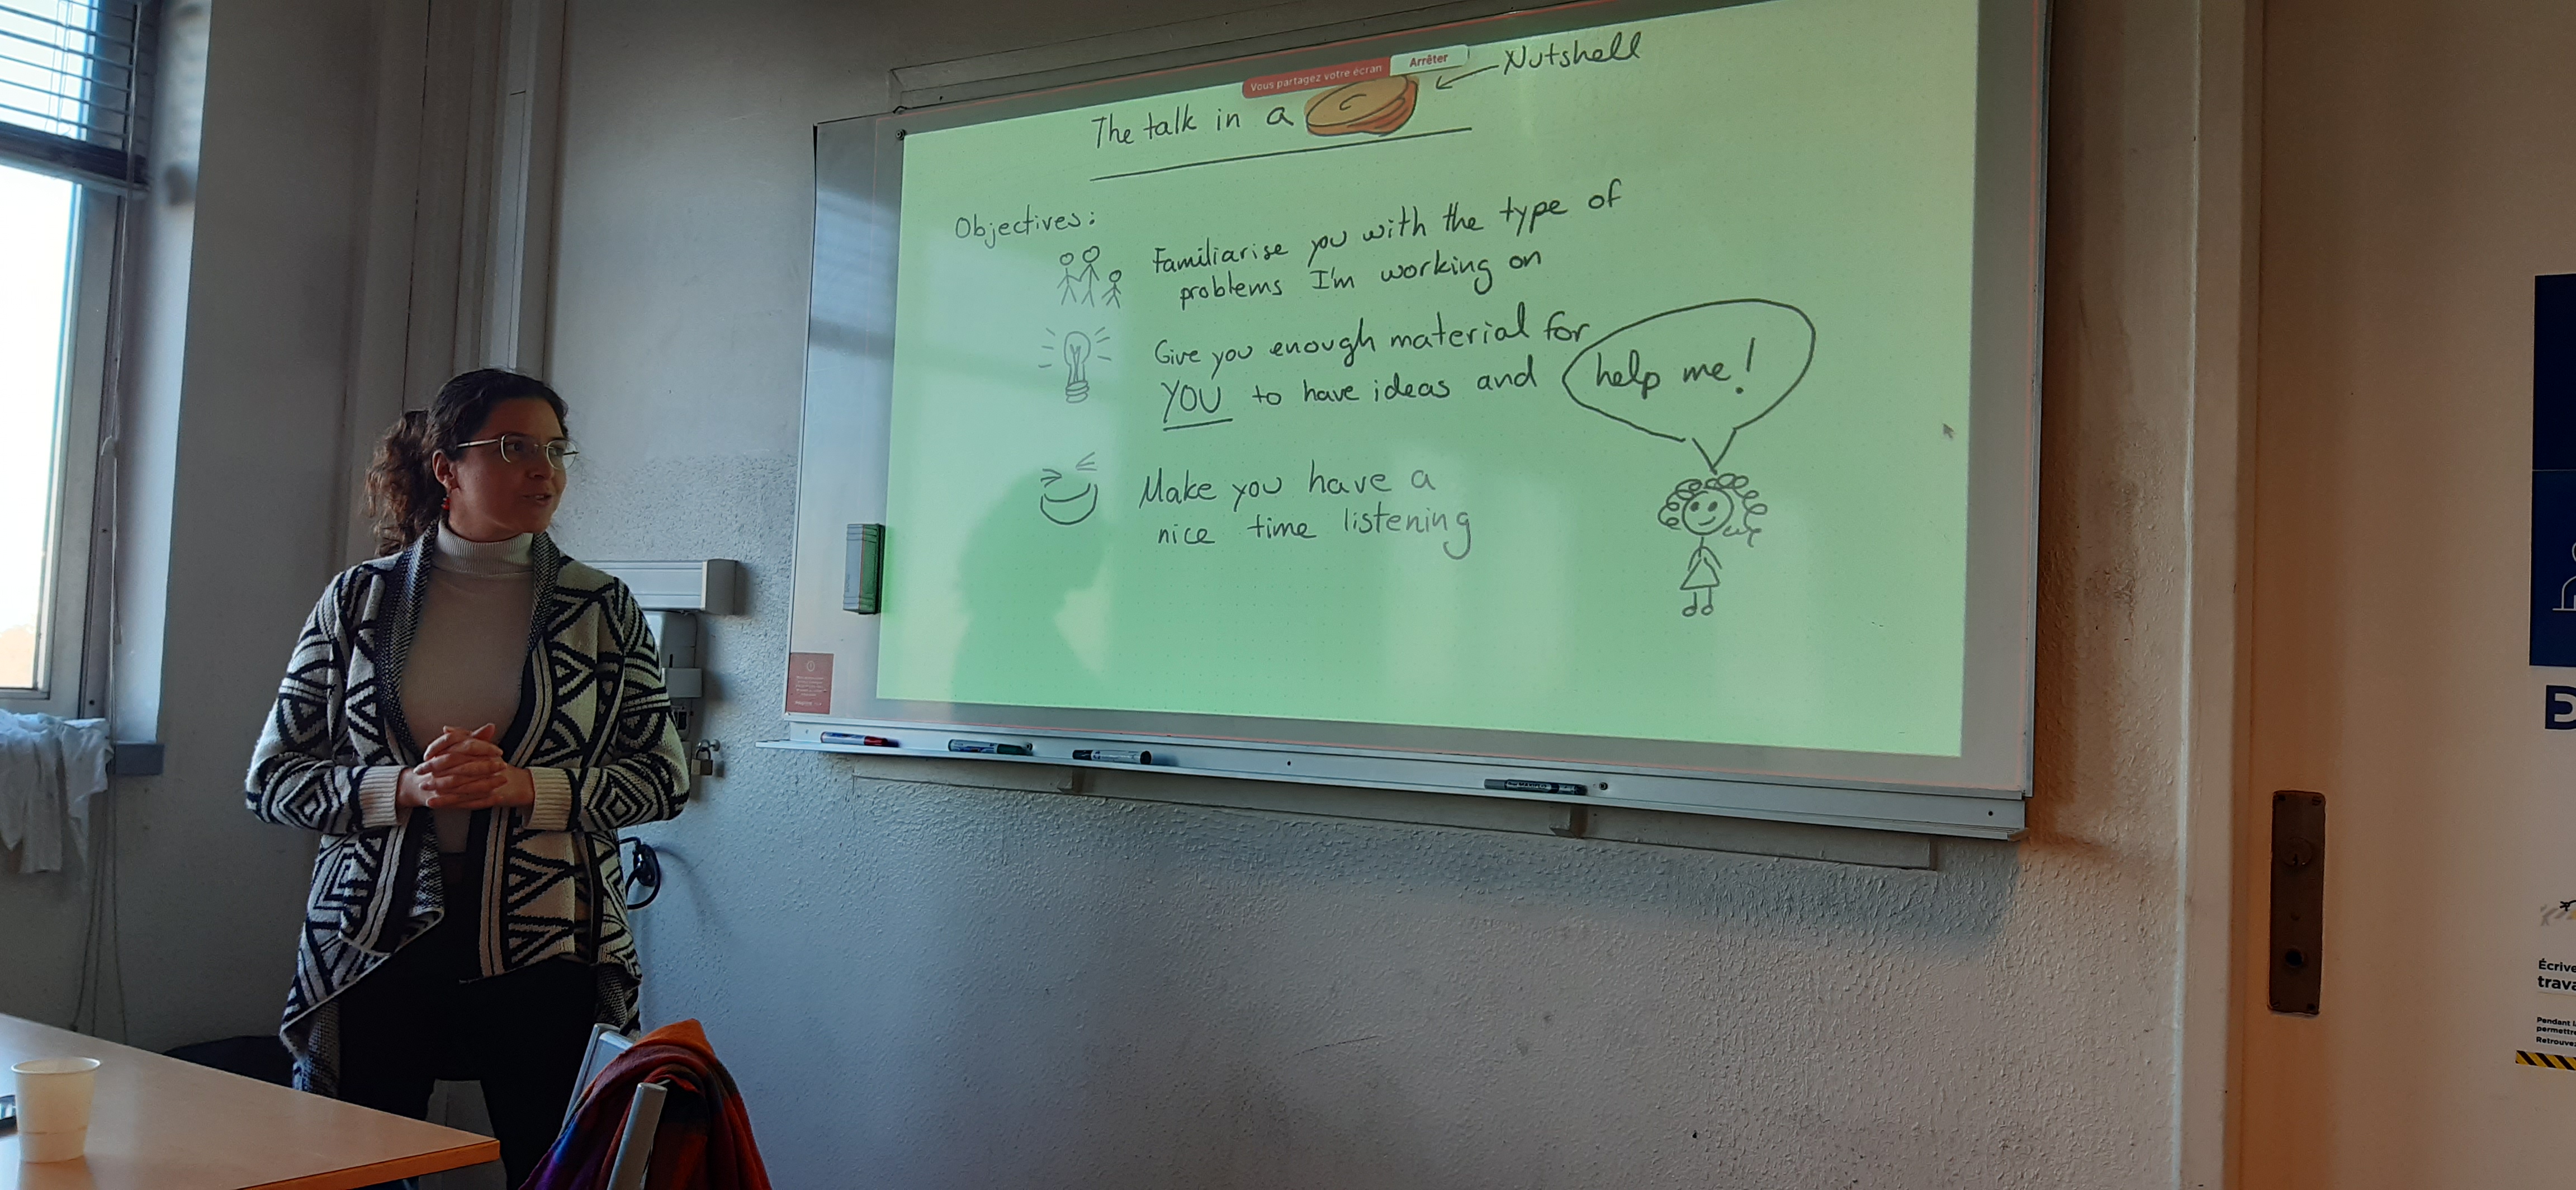 Nutshell
Vous partagez votre écran Arrêter
The talk in a
Objectives:
Familiarise you with the type of
problems I'm working on
Give you enough material for
YOU to have ideas and help me!
Make you have a
nice time listening
Écrive
trava
Pendant l
permettre
Retrouvez